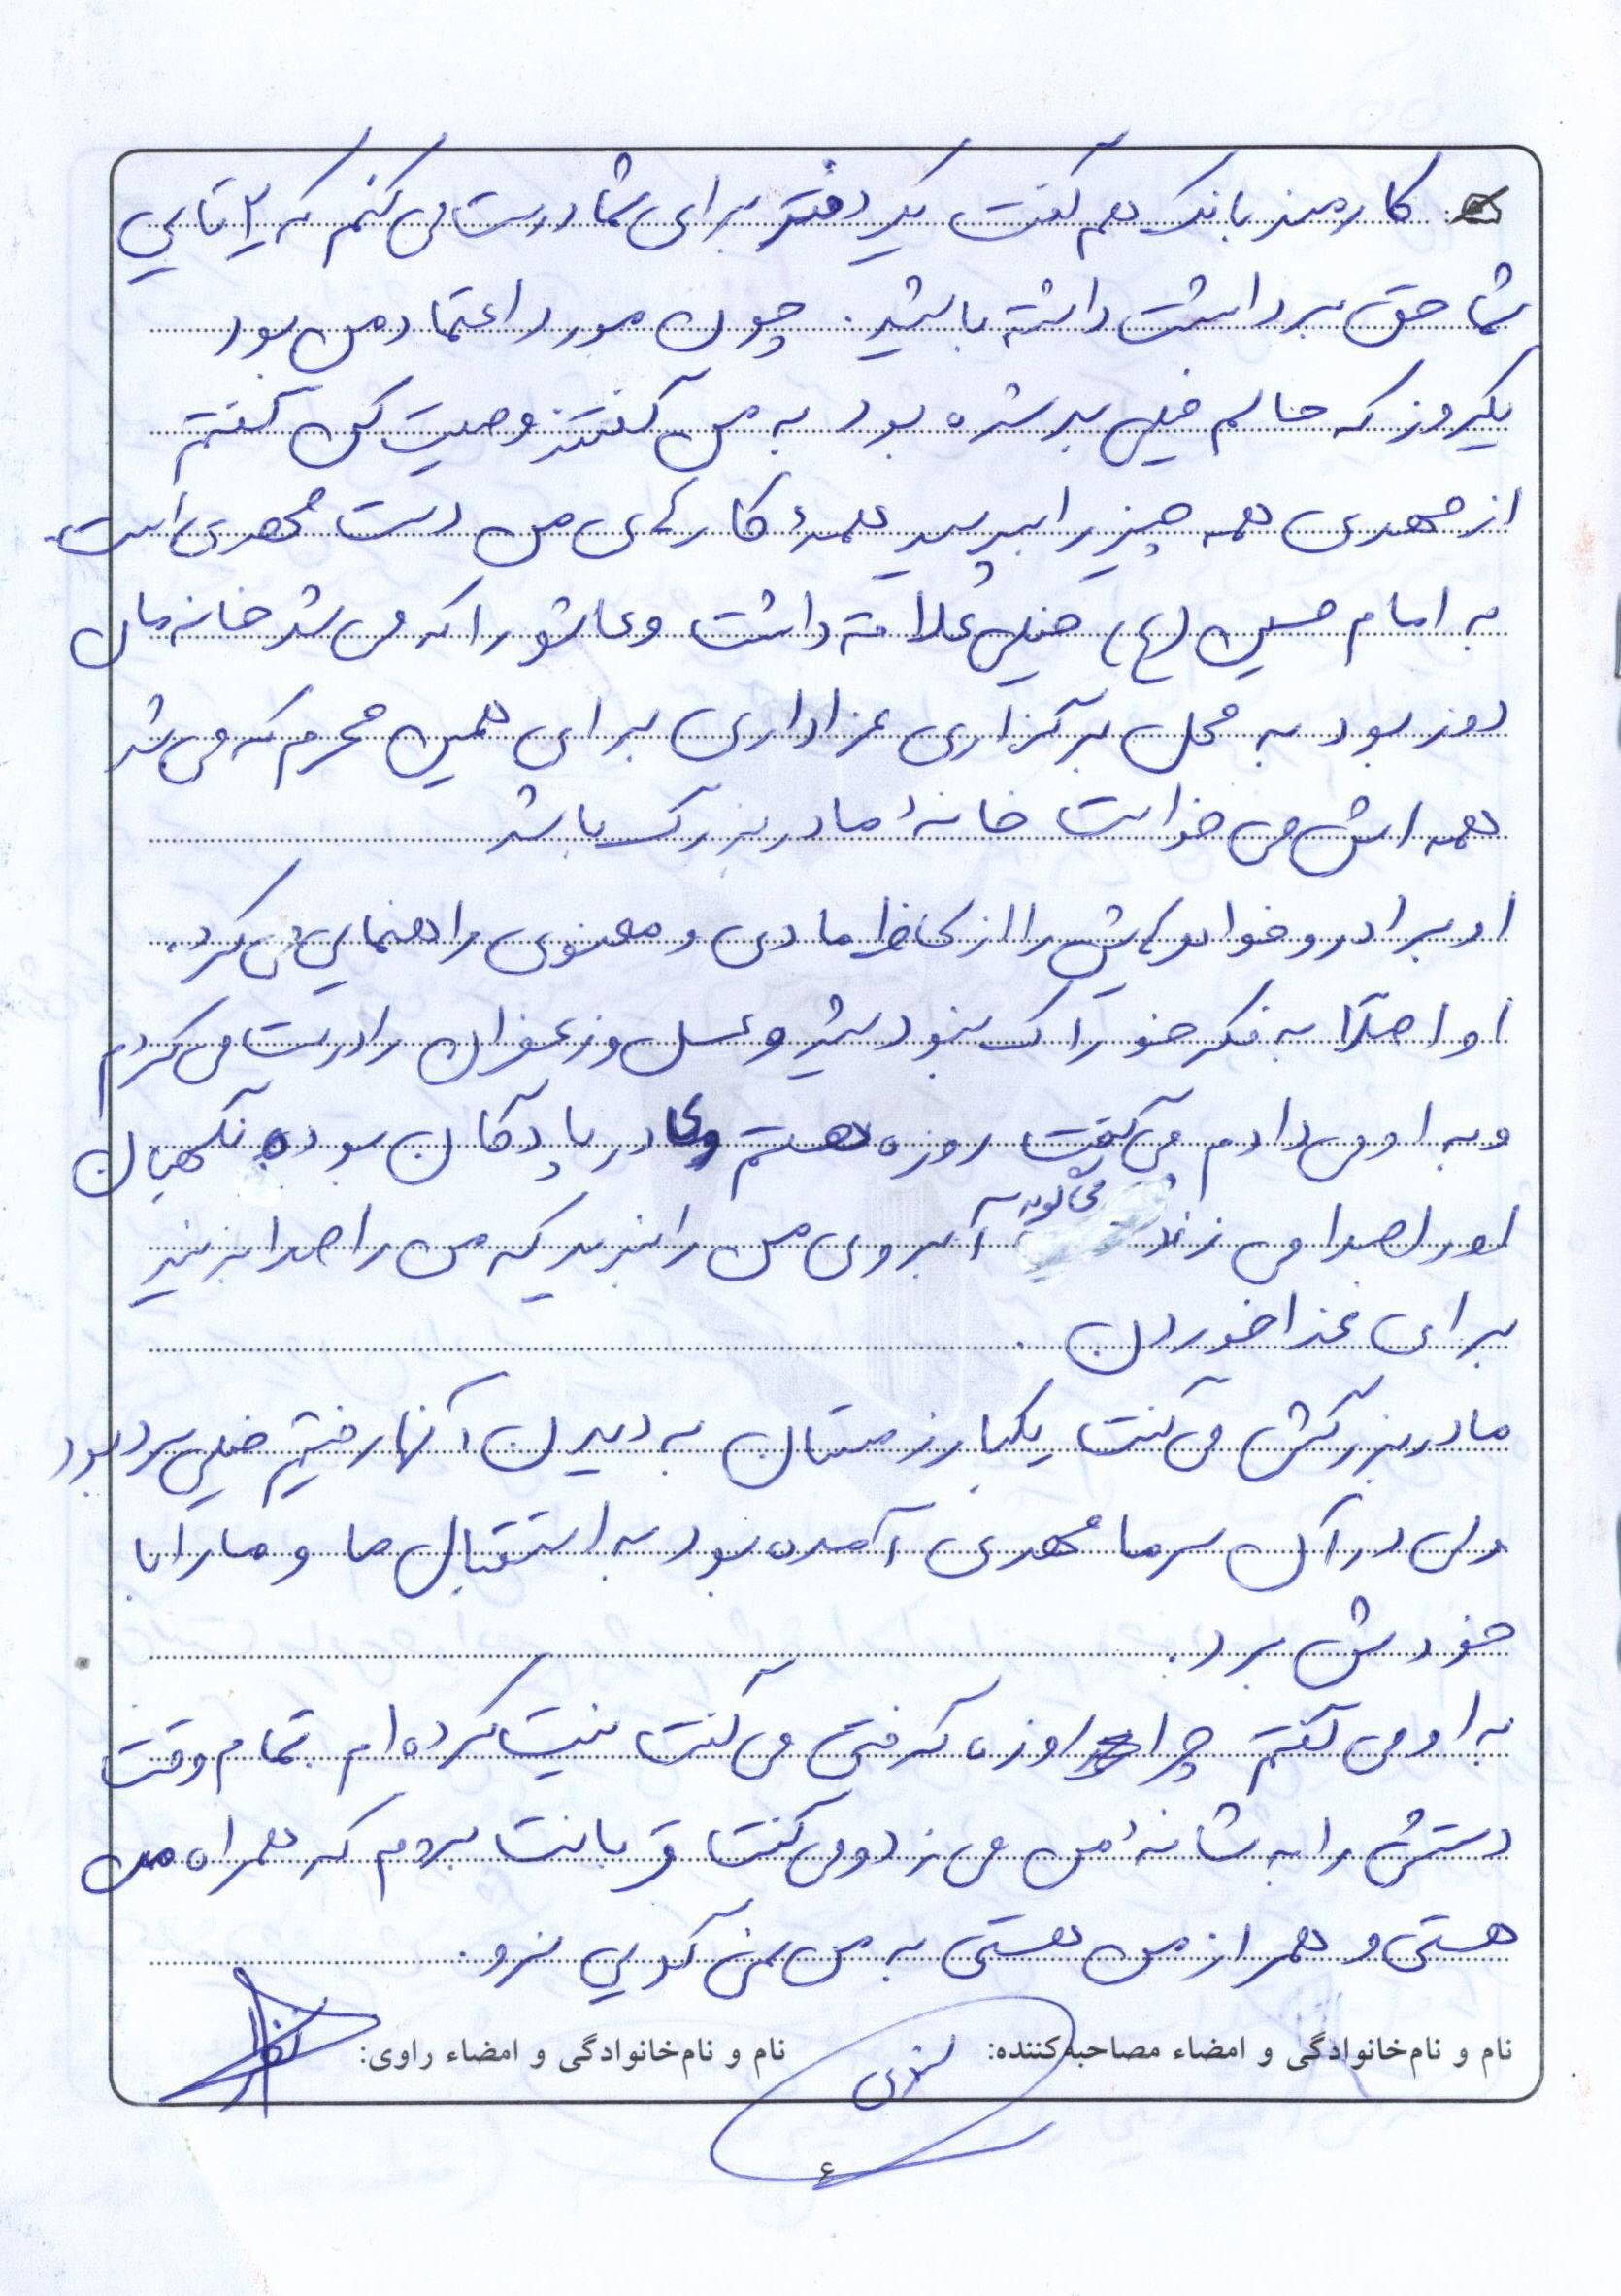 کارمند بانک هم گفت یک دفتر برای شما درست می کنم که ۲ تایی
شما حق برداشت داشته باشید. چون مورد اعتماد من بود
یکروز که حالم خیلی بد شده بود به من گفتند وصیت کن گفتم
از مهدی همه چیز را بپرسید همهٔ کارهای من دست مهدی است.
به امام حسین (ع) خیلی علاقه داشت و عاشورا که می شد خانه مان
روز بود به محل برگزاری عزاداری برای همین محرم که می شد
همه اش می خواست خانهٔ مادربزرگ باشد
او برادر و خواهرهایش را از لحاظ مادی و معنوی راهنمایی می کرد.
او اصلاً به فکر خوراک نبود شیر و عسل و زعفران را درست می کردم
و به او می دادم می گفت روزه هستم و یا در پادگان بوده نگهبان
او را صدا می زند می گوید آبروی من را نبرید که من را صدا بزنید
برای غذا خوردن.
مادربزرگش می گفت یکبار زمستان به دیدن آنها رفتیم خیلی سرد بود
ولی در آن سرما مهدی آمده بود به استقبال ما و ما را با
خودش برد.
به او می گفتم چرا روزه گرفتی می گفت نیت کرده ام تمام وقت
دستش را به شانهٔ من می زد و می گفت قربانت بروم که همراه من
هستی و همراز من هستی به من نمی گویی نرو.
نام و نام‌خانوادگی و امضاء مصاحبه‌کننده: نام و نام‌خانوادگی و امضاء راوی:
۶